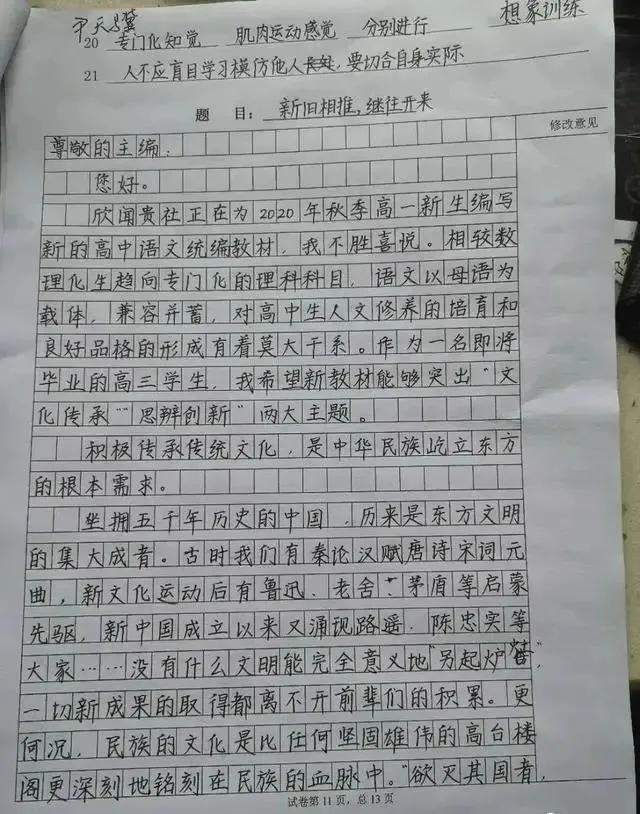 尹天翼
20 专门化知觉 肌肉运动感觉 分别进行 想象训练
21 人不应盲目学习模仿他人长处,要切合自身实际
题 目: 新旧相推,继往开来
修改意见
尊敬的主编:
您好。
欣闻贵社正在为2020年秋季高一新生编写
新的高中语文统编教材,我不胜喜说。相较数
理化生趋向专门化的理科科目,语文以母语为
载体,兼容并蓄,对高中生人文修养的培育和
良好品格的形成有着莫大干系。作为一名即将
毕业的高三学生,我希望新教材能够突出“文
化传承”“思辨创新”两大主题。
积极传承传统文化,是中华民族屹立东方
的根本需求。
坐拥五千年历史的中国,历来是东方文明
的集大成者。古时我们有秦论汉赋唐诗宋词元
曲,新文化运动后有鲁迅、老舍、茅盾等启蒙
先驱,新中国成立以来又涌现路遥、陈忠实等
大家……没有什么文明能完全意义地“另起炉灶”,
一切新成果的取得都离不开前辈们的积累。更
何况,民族的文化是比任何坚固雄伟的高台楼
阁更深刻地铭刻在民族的血脉中。“欲灭其国者,
试卷第11页,总13页